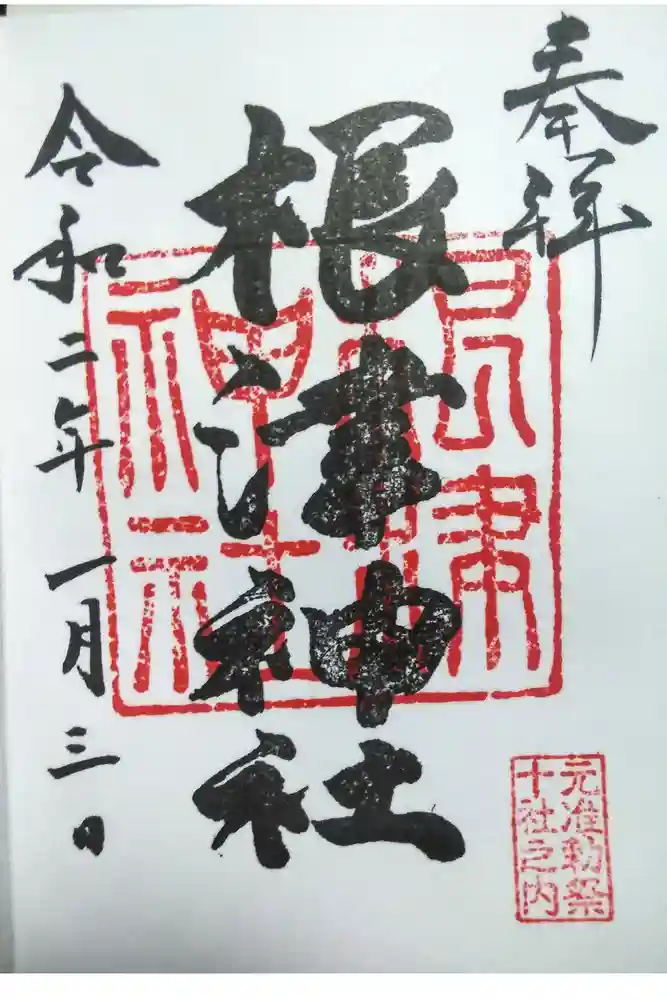 奉拝
根津神社
根津
神社
令和二年一月三日
元准勅祭
十社之内